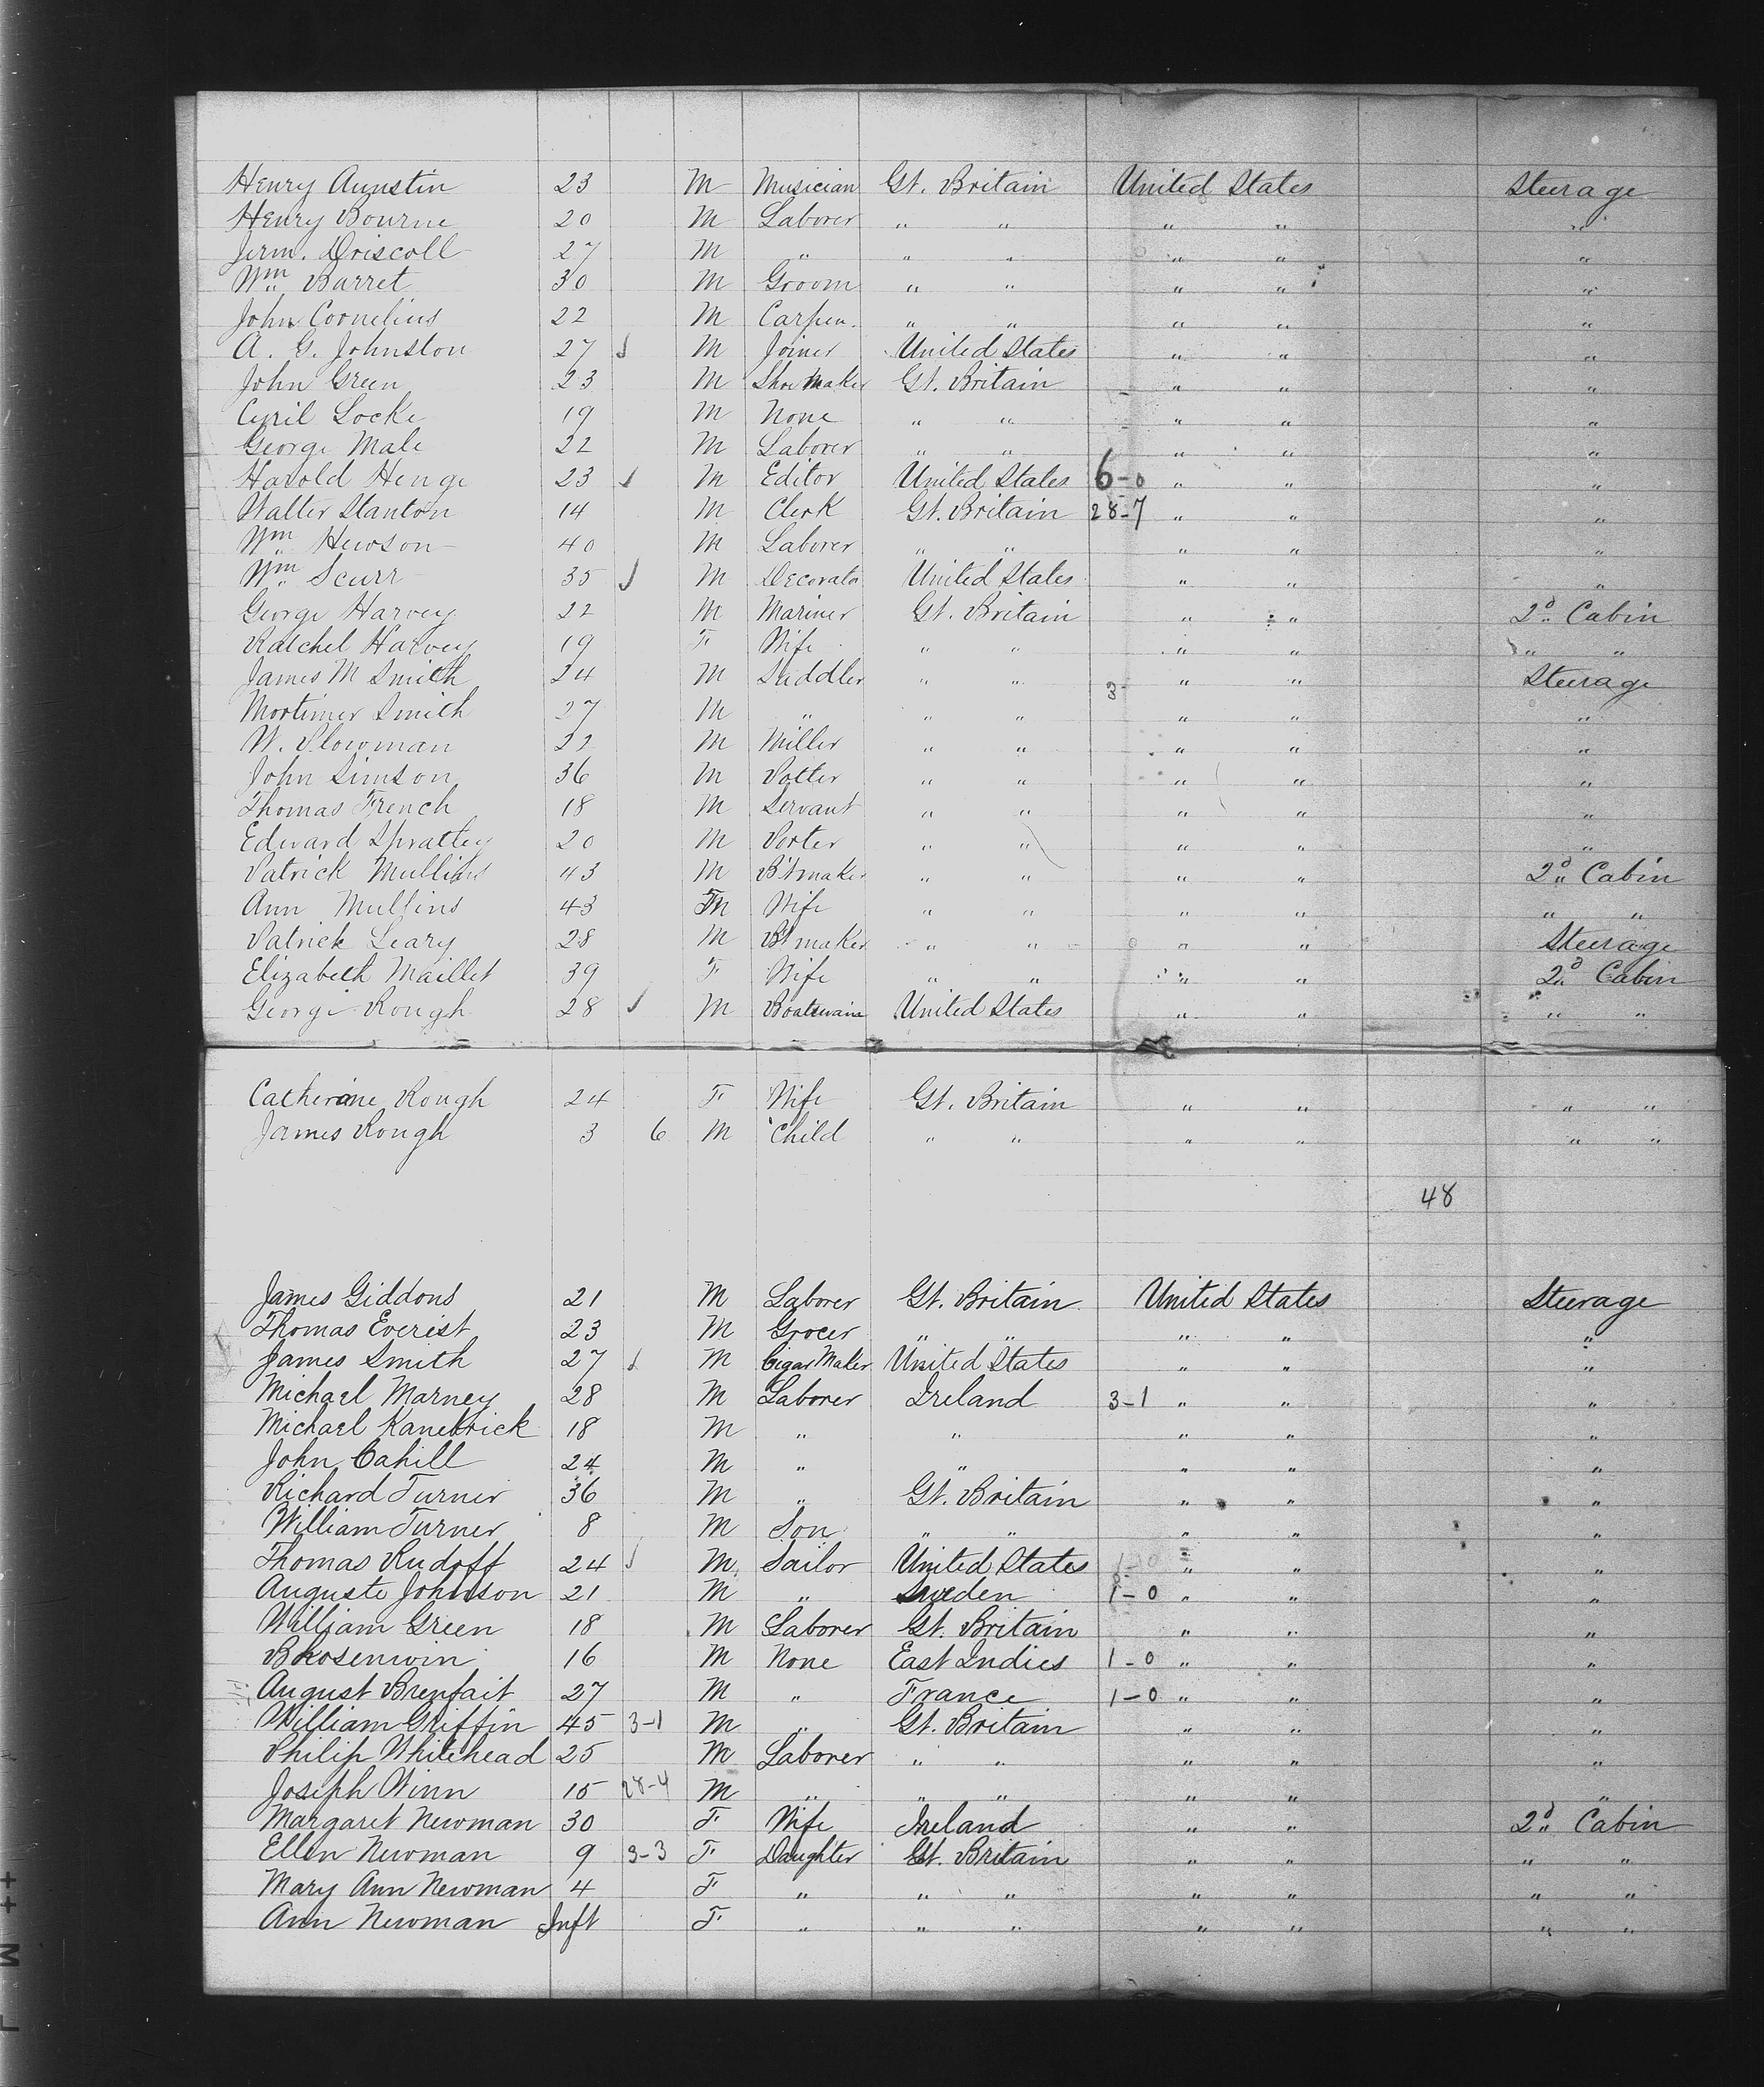 Henry Augustin 23 M Musician Gt. Britain United States Steerage
Henry Bourne 20 M Laborer " " " " "
Jerm. Driscoll 27 M " " " " " "
Wm Barret 30 M Groom " " " " "
John Cornelius 22 M Carpen. " " " " "
A. G. Johnston 27 M Joiner United States " " "
John Green 23 M Shoe Maker Gt. Britain " " "
Cyril Locke 19 M None " " " " "
George Male 22 M Laborer " " " " "
Harold Henge 23 M Editor United States 6-0 " " "
Walter Stanton 14 M Clerk Gt. Britain 28-7 " " "
Wm Hewson 40 M Laborer " " " " "
Wm Scurr 35 M Decorator United States " " "
George Harvey 22 M Mariner Gt. Britain " " 2d Cabin
Ratchel Harvey 19 F Wife " " " " " "
James M Smith 24 M Saddler " " 3- " " Steerage
Mortimer Smith 27 M " " " " " "
W. Plowman 22 M Miller " " " " "
John Simson 36 M Potter " " " " "
Thomas French 18 M Servant " " " " "
Edward Spratley 20 M Porter " " " " "
Patrick Mullins 43 M Btmaker " " " " 2d Cabin
Ann Mullins 43 F Wife " " " " " "
Patrick Leary 28 M Bt maker " " " " Steerage
Elizabeth Maillet 39 F Wife " " " " 2d Cabin
George Rough 28 M Boatswain United States " " " "
Catherine Rough 24 F Wife Gt. Britain " " " "
James Rough 3 6 M Child " " " " " "
48
James Giddons 21 M Laborer Gt. Britain United States Steerage
Thomas Everist 23 M Grocer " " " " "
James Smith 27 M Cigar Maker United States " " "
Michael Marney 28 M Laborer Ireland 3-1 " " "
Michael 18 M " " " " "
John Cahill 24 M " " " " "
Richard Turner 36 M " Gt. Britain " " "
William Turner 8 M Son " " " " "
Thomas Rudoff 24 M Sailor United States " " "
Auguste Johnson 21 M " Sweden 1-0 " " "
William Green 18 M Laborer Gt. Britain " " "
B Rosenwin 16 M None East Indies 1-0 " " "
August Brenfait 27 M " France 1-0 " " "
William Griffin 45 3-1 M " Gt. Britain " " "
Philip Whitehead 25 M Laborer " " " " "
Joseph Winn 15 28-4 M " " " " " "
Margaret Newman 30 F Wife Ireland " " 2d Cabin
Ellen Newman 9 3-3 F Daughter Gt. Britain " " " "
Mary Ann Newman 4 F " " " " " " "
Ann Newman Inft F " " " " " " "